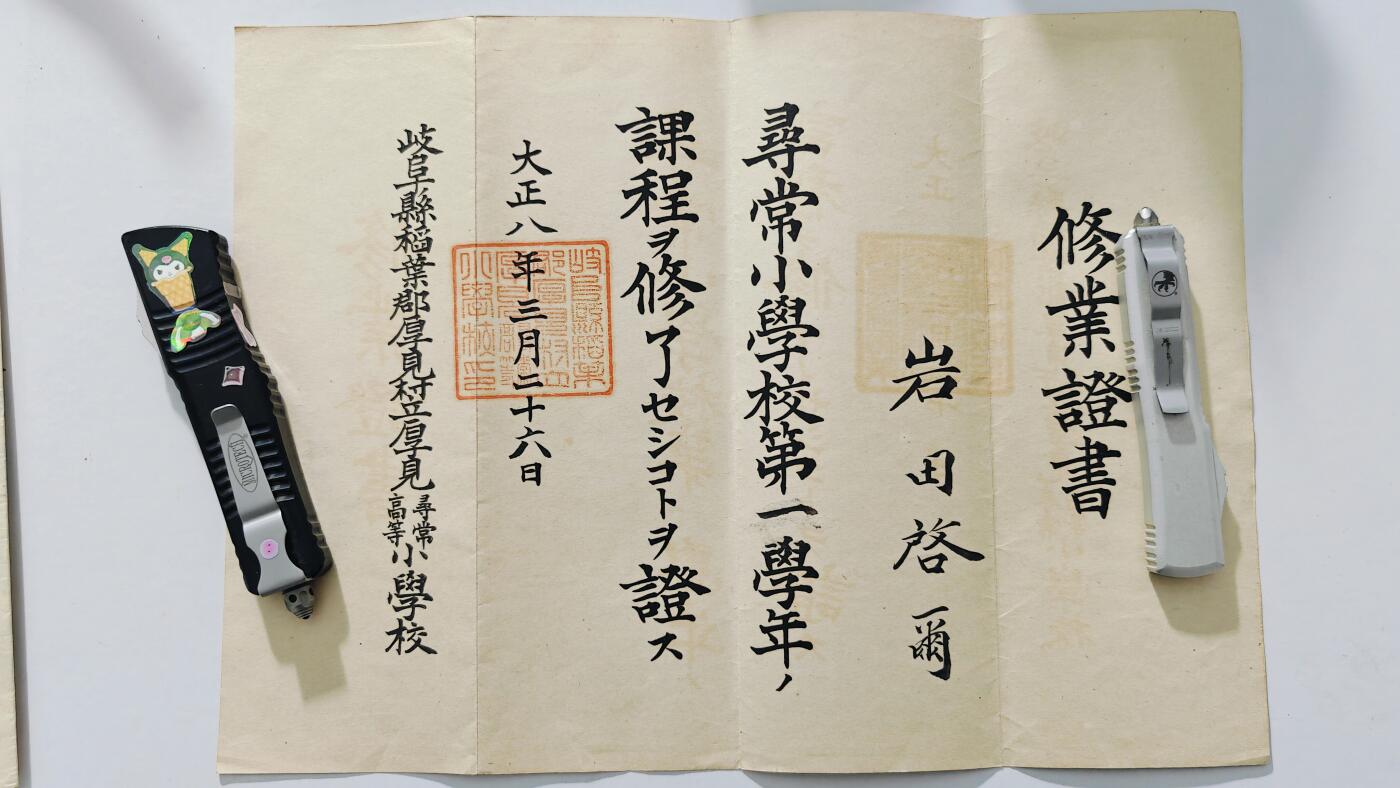 修業證書
岩田啓爾
尋常小學校第一學年ノ
課程ヲ修了セシコトヲ證ス
大正八年三月二十六日
岐阜縣稻葉郡厚見村立厚見尋常高等小學校
MICROTECH